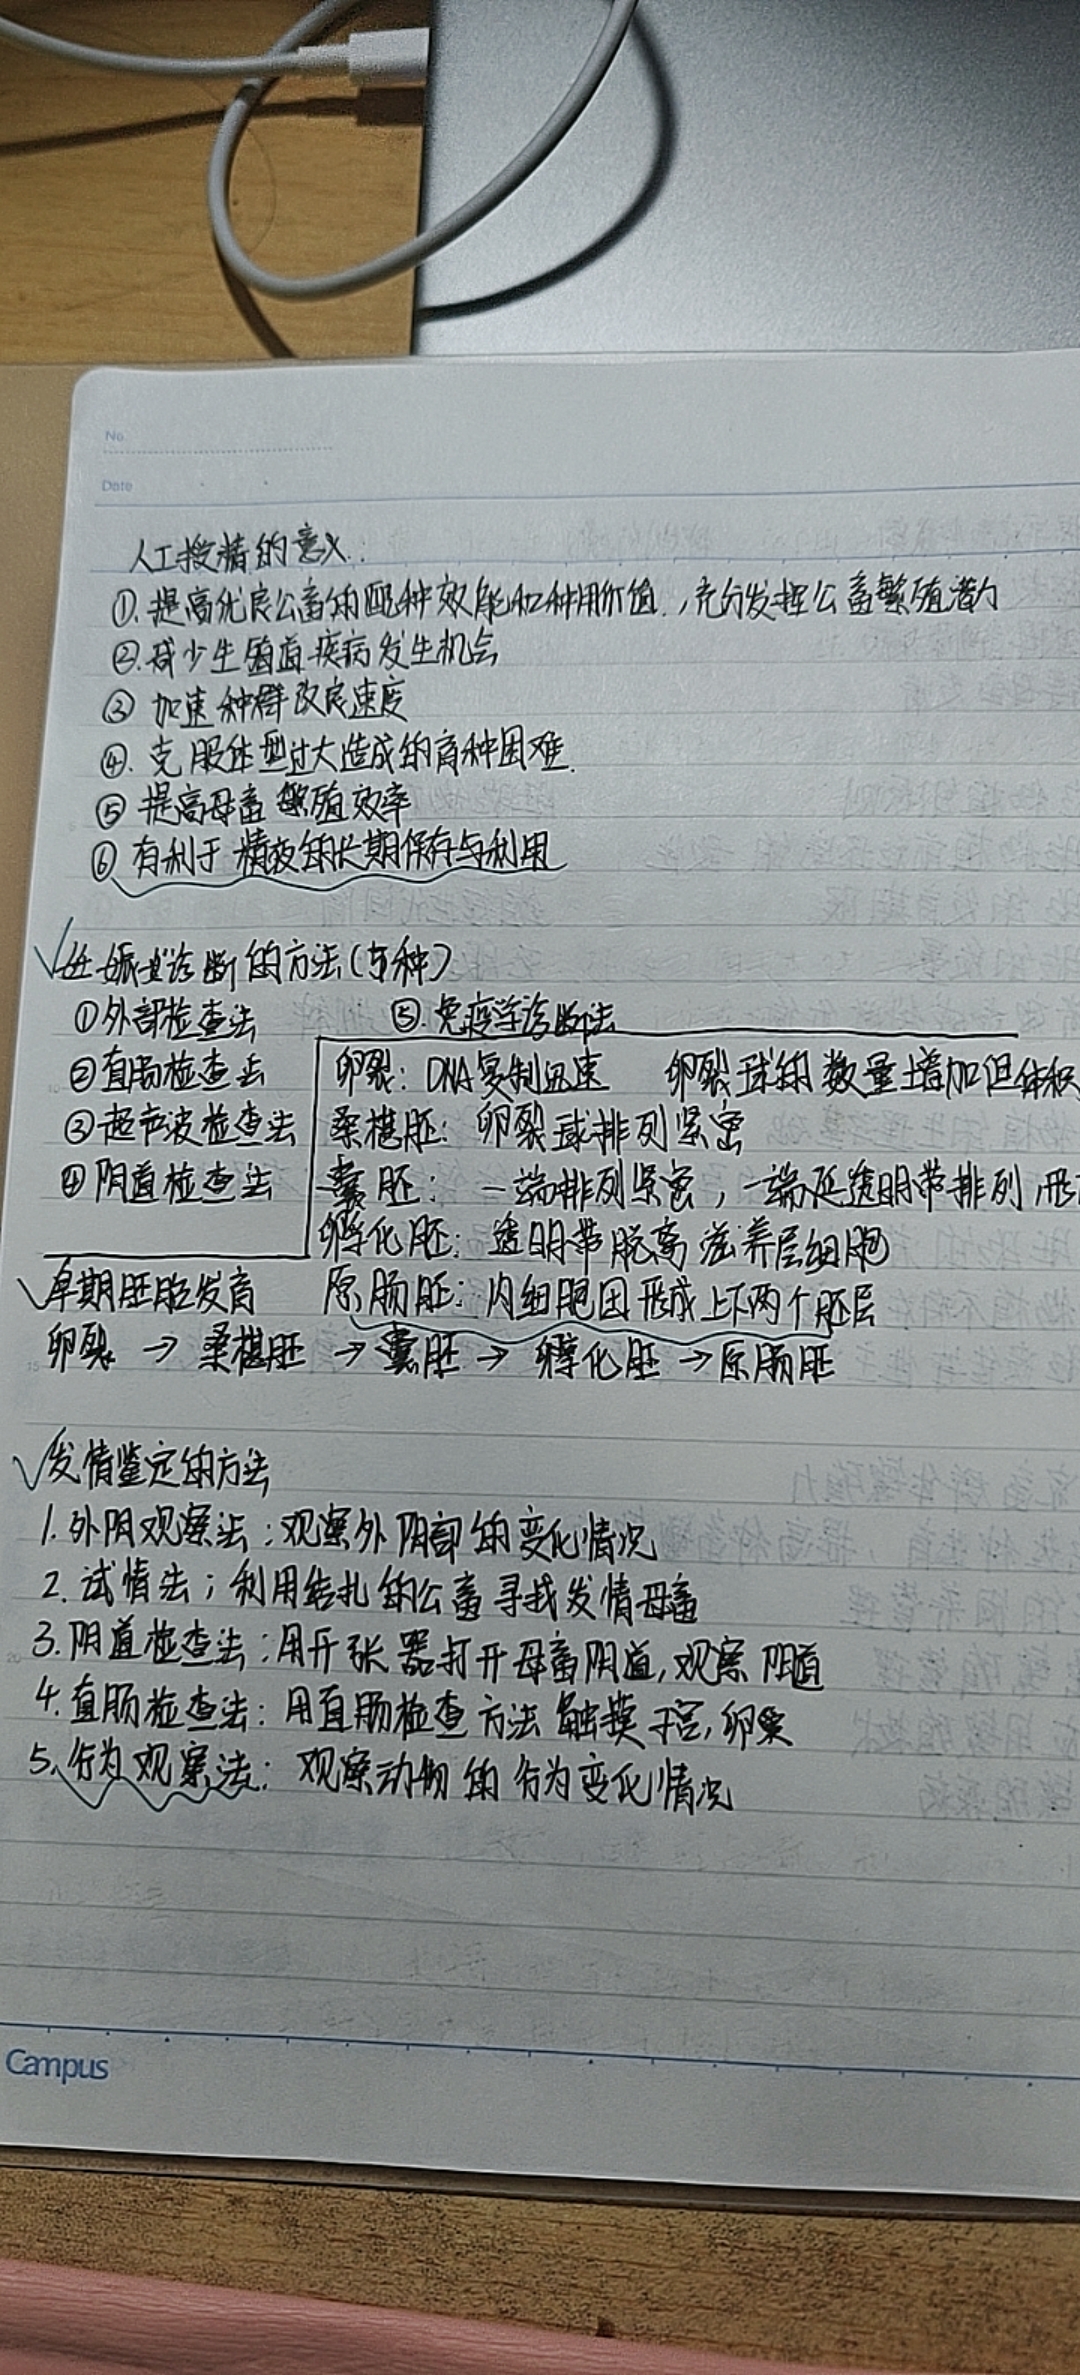 No.
Date
人工授精的意义:
①.提高优良公畜的配种效能和种用价值,充分发挥公畜繁殖潜力
②.减少生殖道疾病发生机会
③ 加速种群改良速度
④.克服体型过大造成的育种困难.
⑤ 提高母畜繁殖效率
⑥ 有利于精液的长期保存与利用
√妊娠诊断的方法(5种)
①外部检查法 ⑤.免疫学诊断法
②直肠检查法
③超声波检查法
④阴道检查法
卵裂: DNA复制迅速 卵裂球的数量增加但体积
桑椹胚: 卵裂球排列紧密
囊胚: 一端排列紧密,一端延透明带排列,形
孵化胚: 透明带脱离滋养层细胞
原肠胚: 内细胞团形成上下两个胚层
√早期胚胎发育
卵裂 → 桑椹胚 → 囊胚 → 孵化胚 → 原肠胚
√发情鉴定的方法
1.外阴观察法:观察外阴部的变化情况
2.试情法;利用结扎的公畜寻找发情母畜
3.阴道检查法:用开张器打开母畜阴道,观察阴道
4.直肠检查法:用直肠检查方法触摸子宫,卵巢
5.行为观察法: 观察动物的行为变化情况
Campus